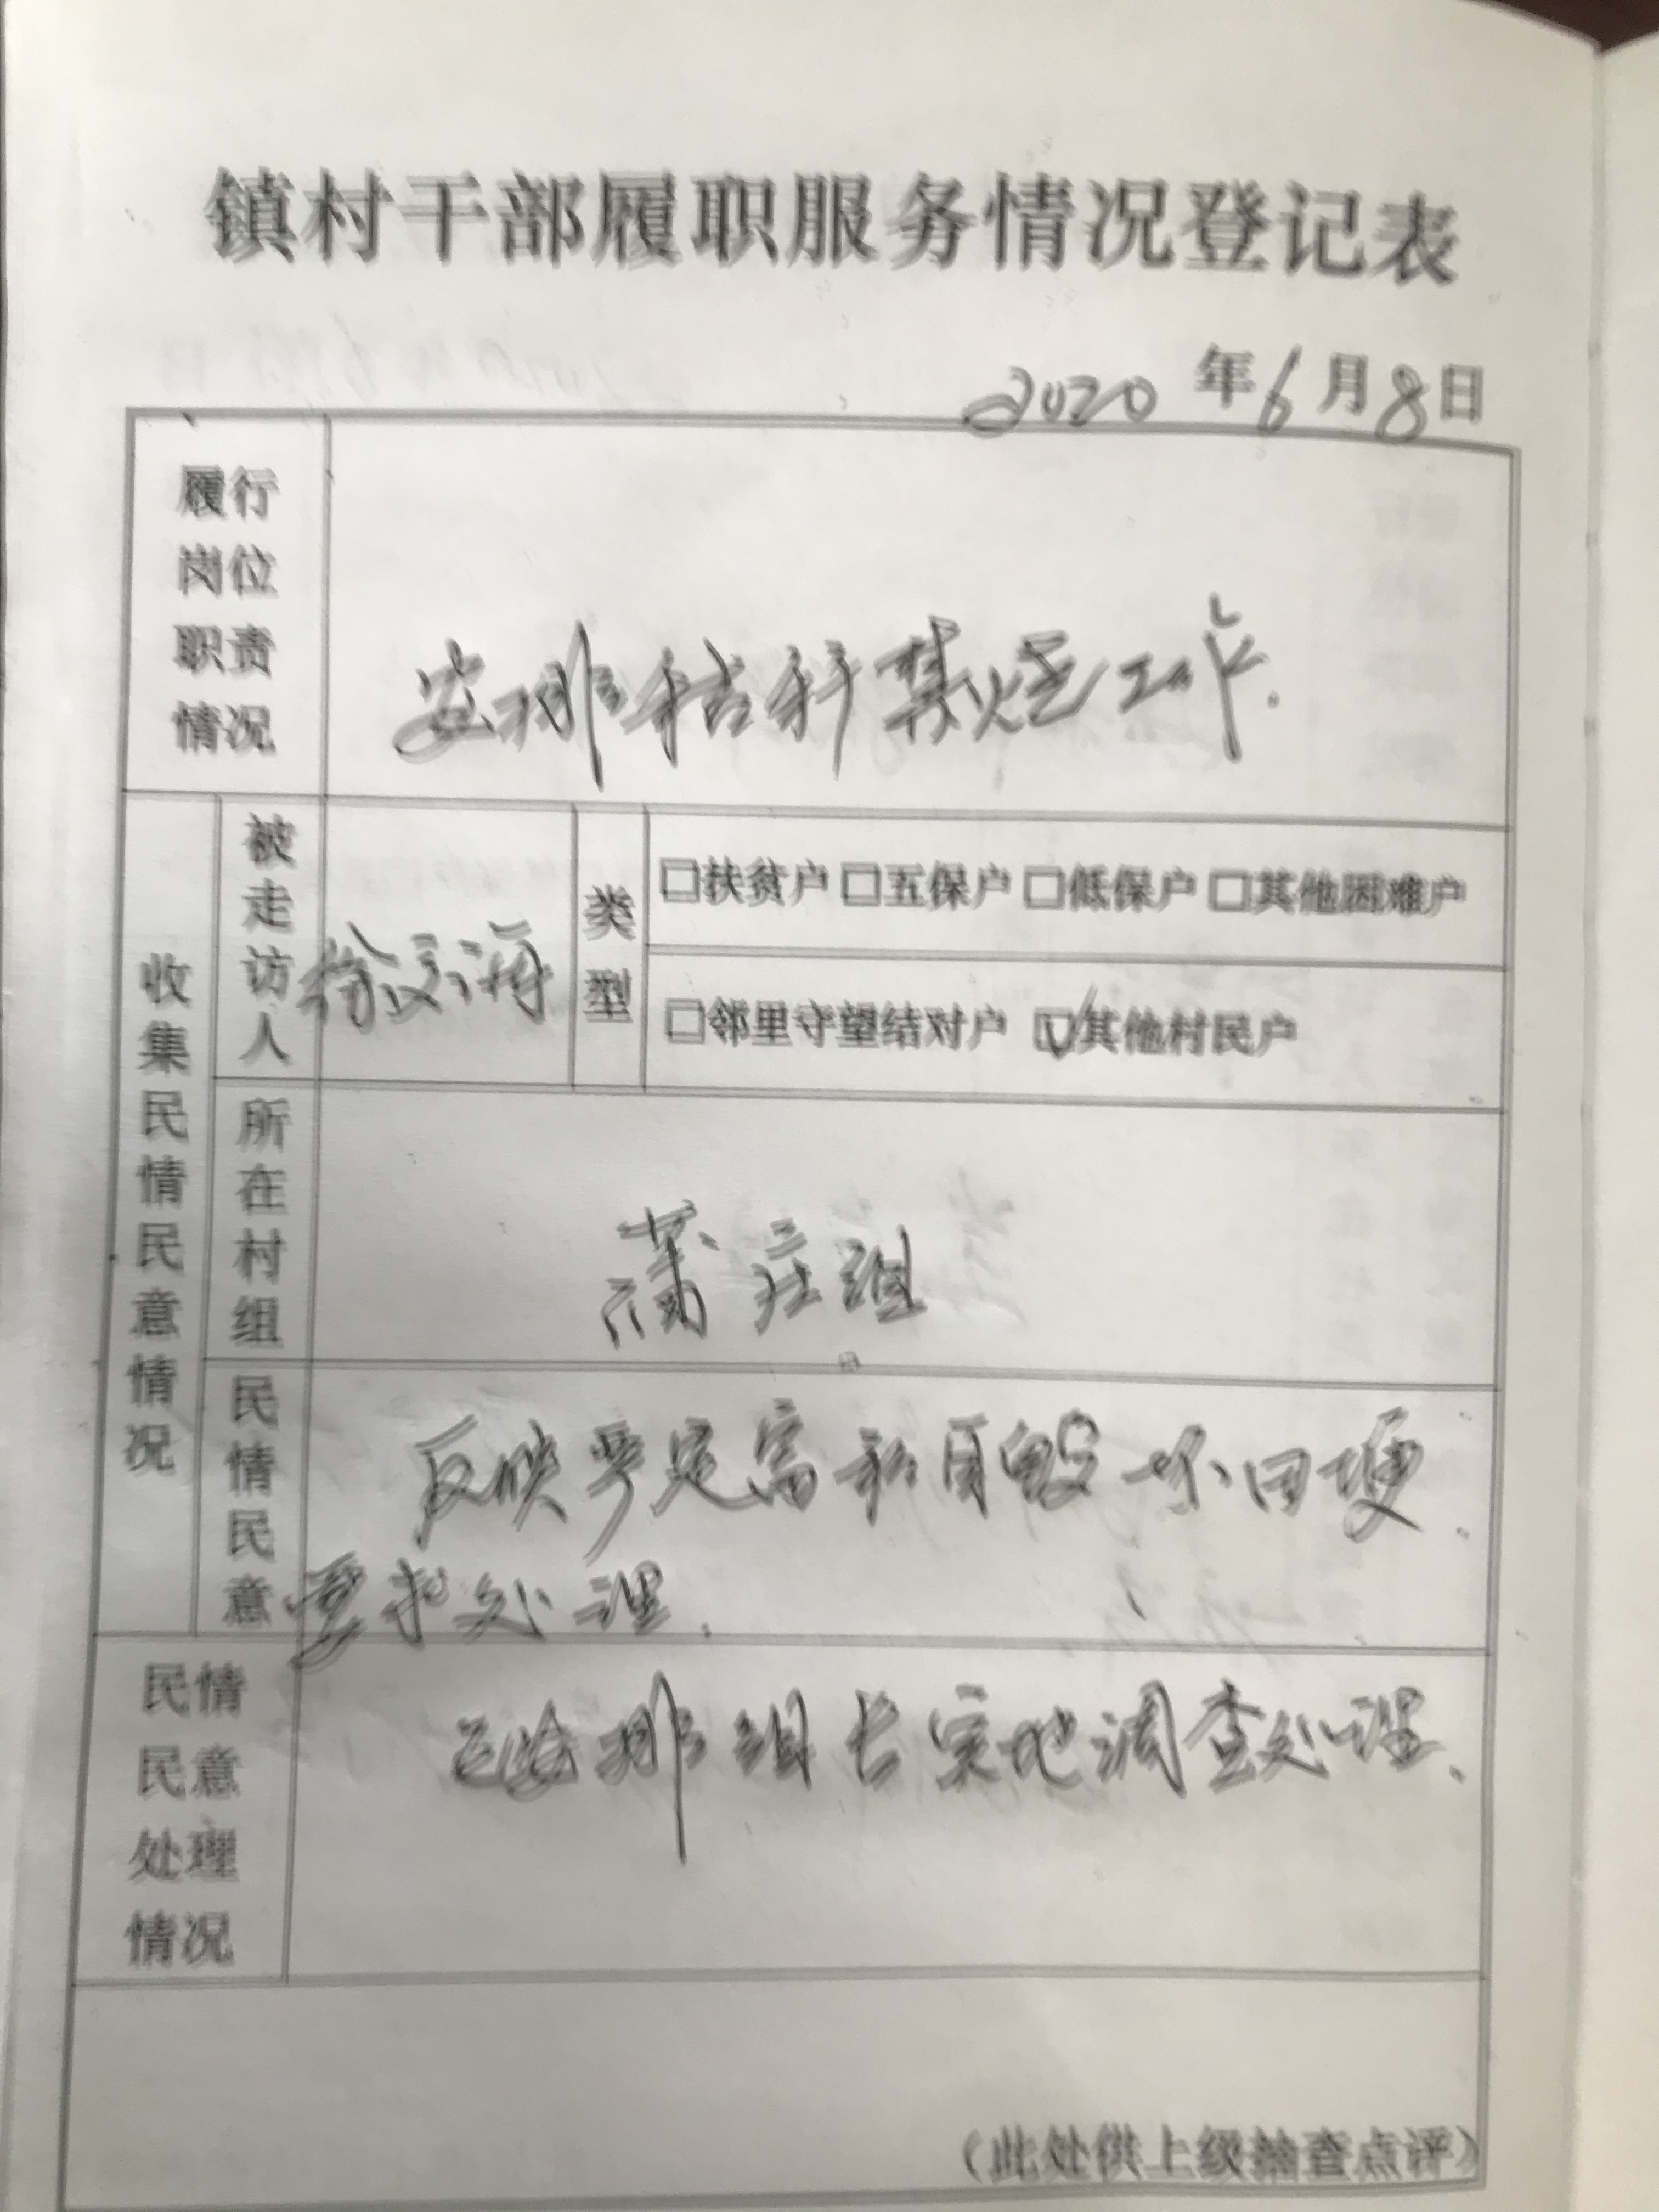 镇村干部履职服务情况登记表
2020年6月8日
履行
岗位
职责
情况
安排秸秆禁烧工作.
收集民情民意情况
被走访人
徐文海
类型
□扶贫户 □五保户 □低保户 □其他困难户
□邻里守望结对户 ☑其他村民户
所在村组
蒲庄组
民情民意
反映严定富私自毁坏田埂.
要求处理.
民情
民意
处理
情况
已安排组长实地调查处理.
（此处供上级抽查点评）